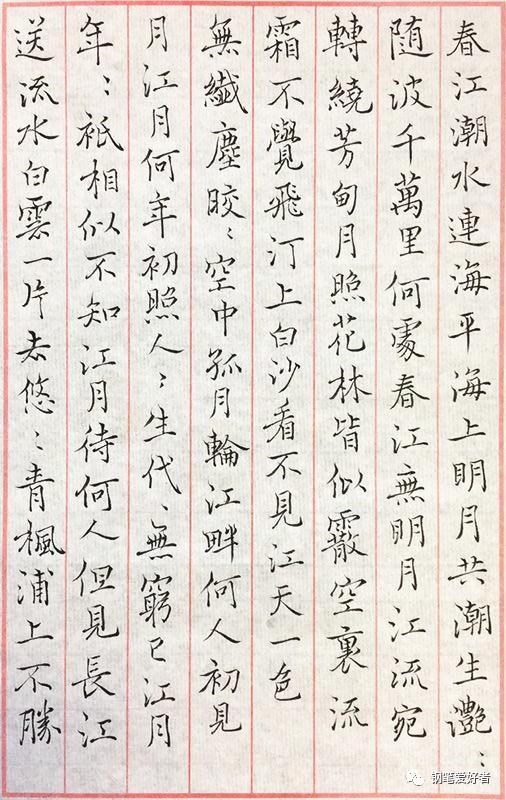 春江潮水連海平海上明月共潮生灔〻
随波千萬里何處春江無明月江流宛
轉繞芳甸月照花林皆似霰空裏流
霜不覺飛汀上白沙看不見江天一色
無纖塵皎〻空中孤月輪江畔何人初見
月江月何年初照人〻生代〻無窮已江月
年〻祇相似不知江月待何人但見長江
送流水白雲一片去悠〻青楓浦上不勝
钢笔爱好者